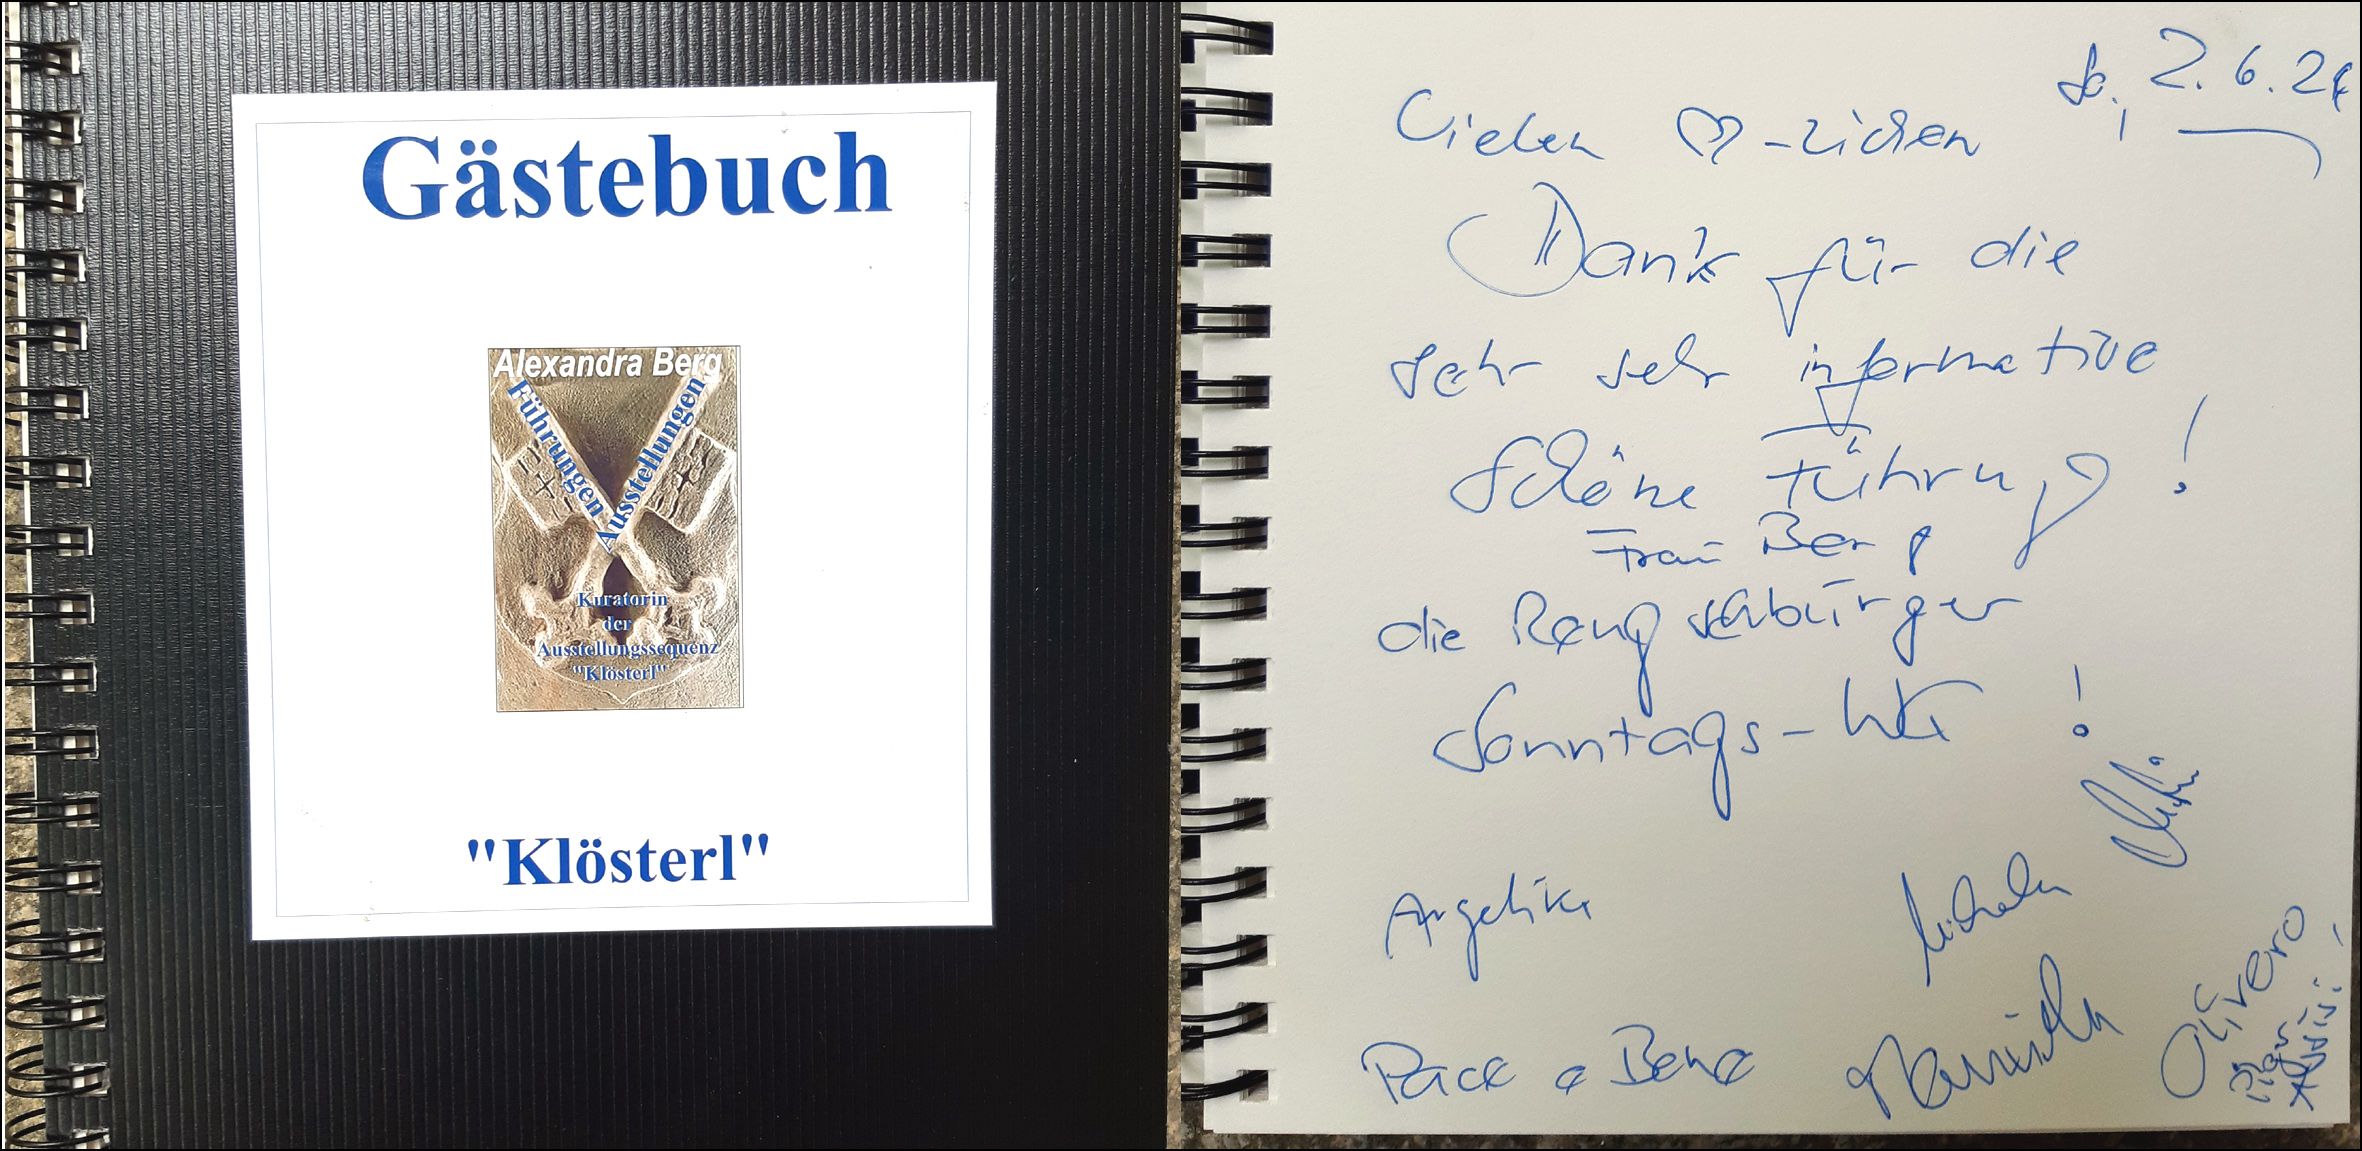 Gästebuch
Alexandra Berg
Führungen
Ausstellungen
Kuratorin
der
Ausstellungssequenz
"Klösterl"
"Klösterl"
So, 2.6.24
Vielen ♡-lichen
Dank für die
sehr sehr informative
Schöne Führung!
Frau Berg
die
Sonntags-
!
Angelika
Michaela
Pace e Bene
Manuela
Olivero